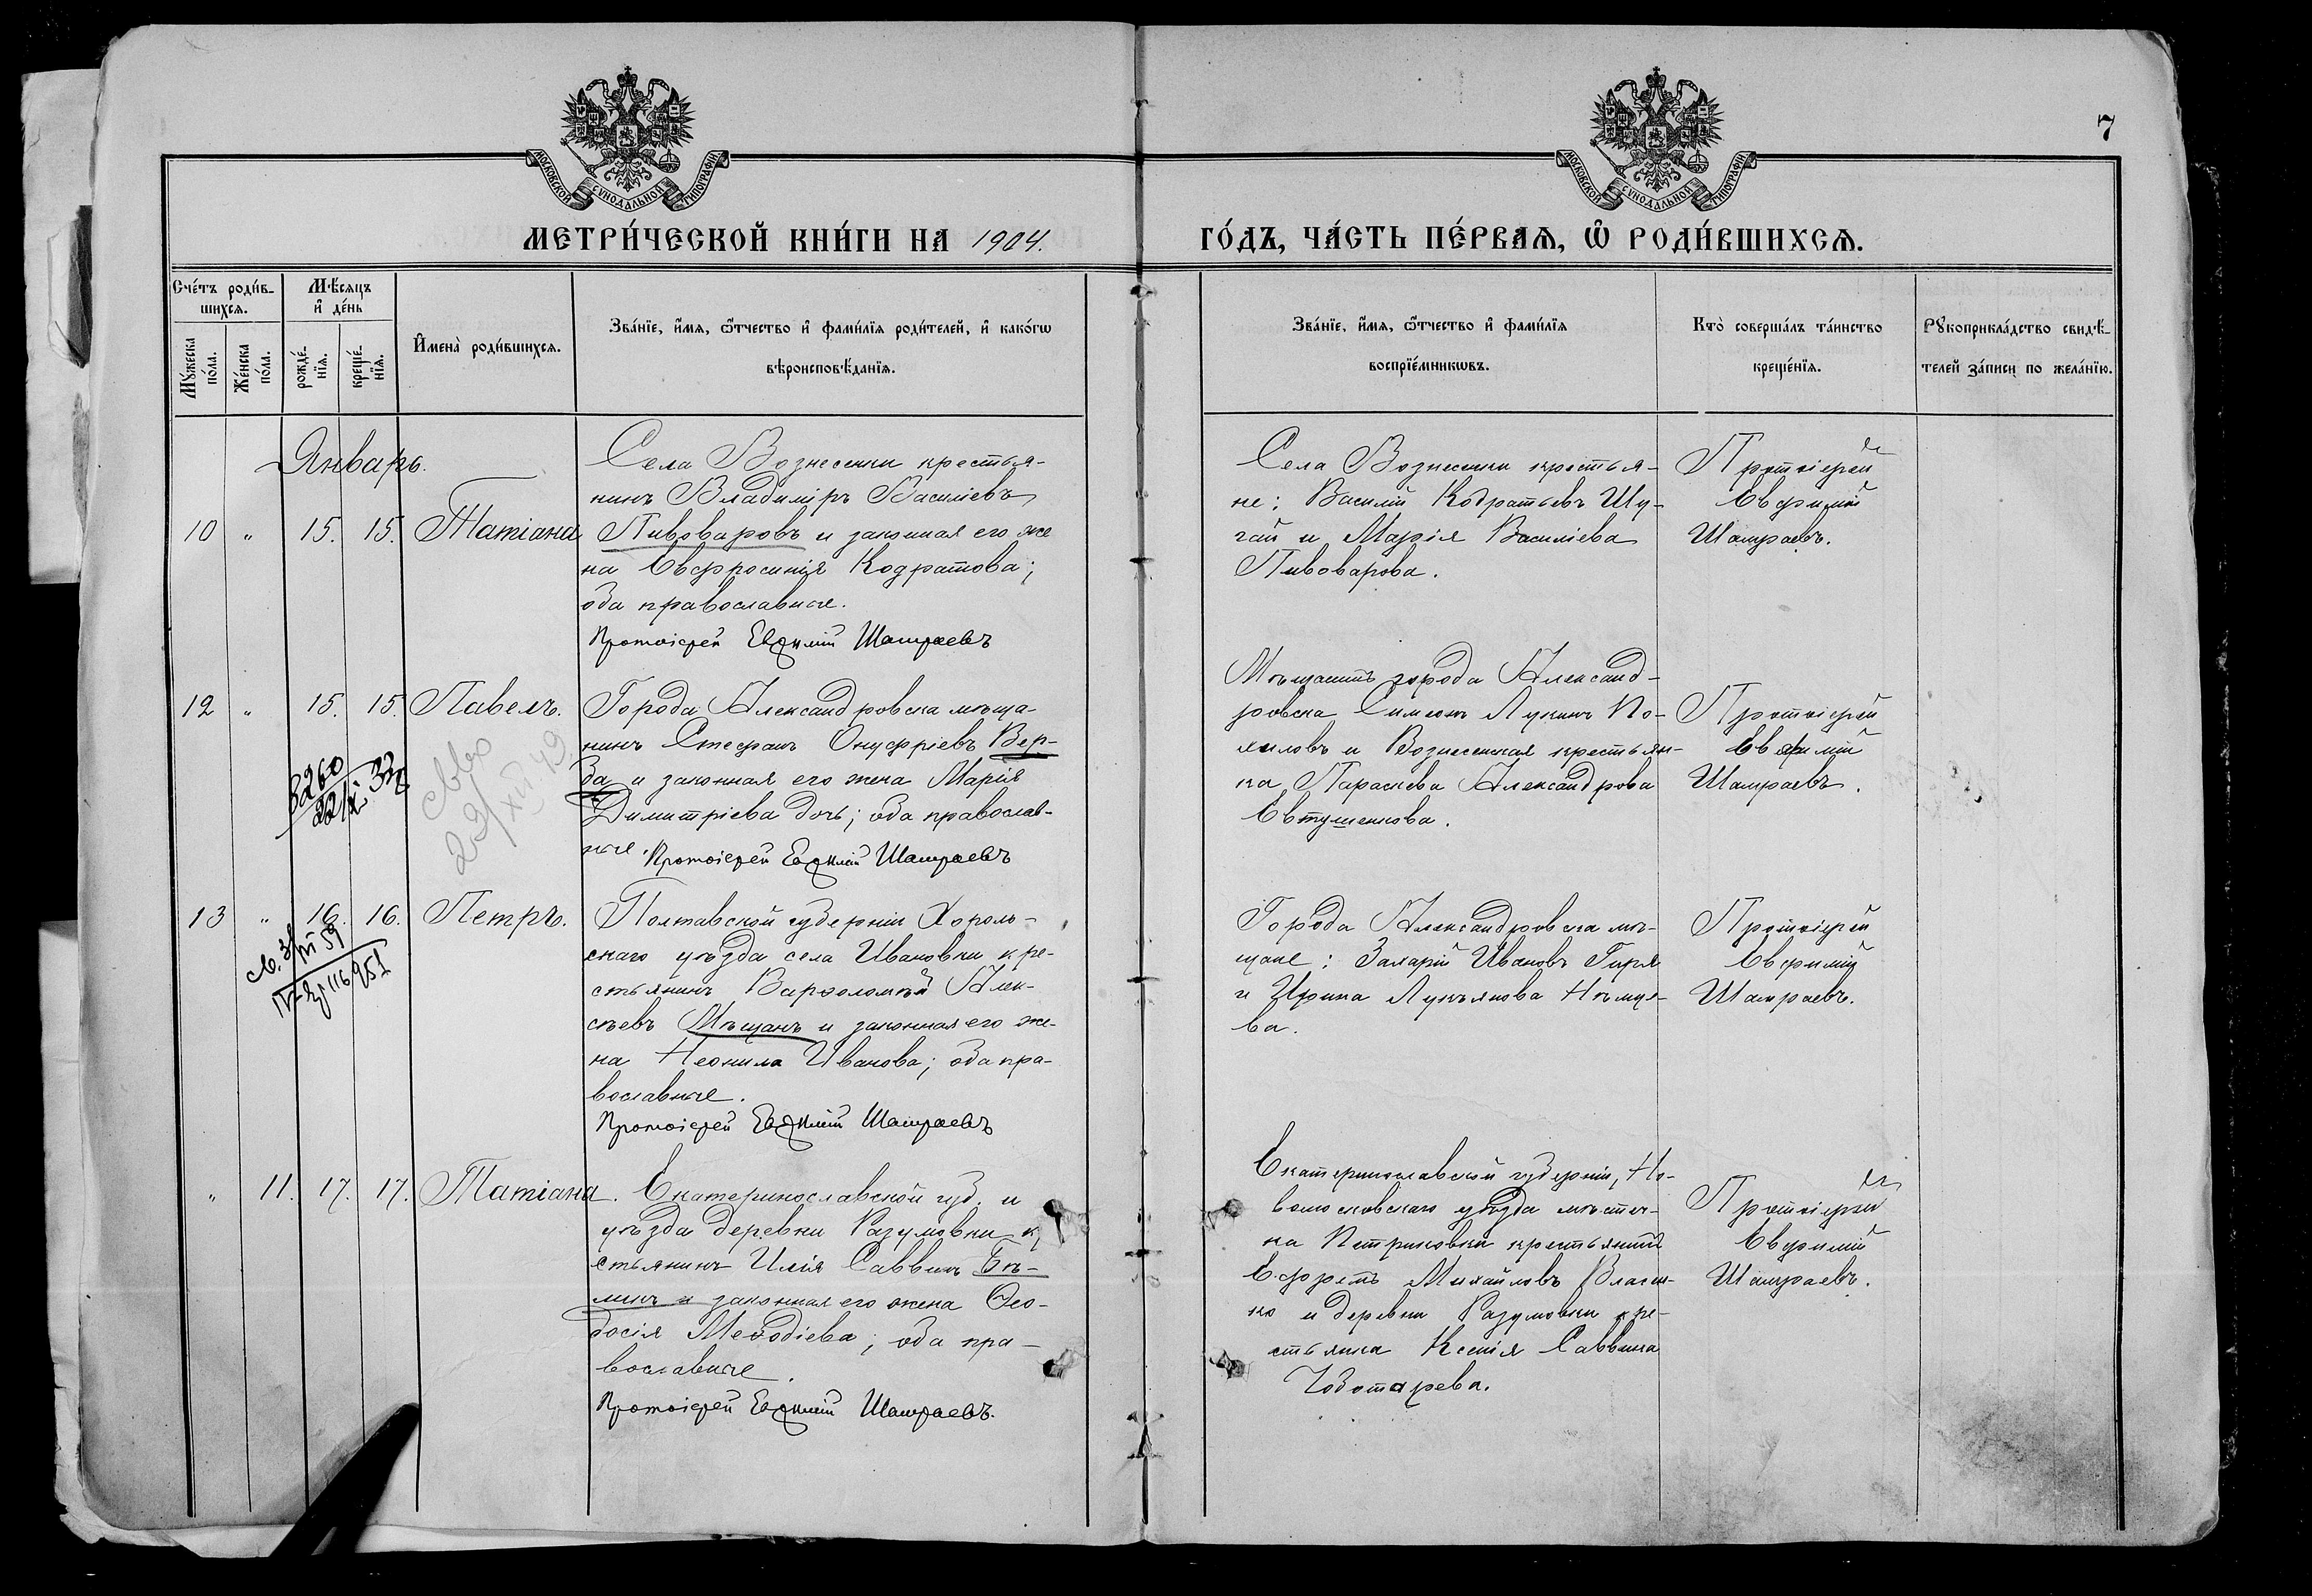 7
МОСКОВСКОЙ СѴНОДАЛЬНОЙ ТИПОГРАФІИ
МОСКОВСКОЙ СѴНОДАЛЬНОЙ ТИПОГРАФІИ
МЕТРИ́ЧЕСКОЙ КНИ́ГИ НА 1904.
ГО́ДЪ, ЧА́СТЬ ПЕ́РВАѦ, Ѡ҆ РОДИ́ВШИХСѦ.
Сче́тъ роди́в-
шихсѧ.
Мѣ́сѧцъ
и҆ де́нь
Мꙋ́жеска
по́ла.
Же́нска
по́ла.
рожде́-
нїѧ.
креще́-
нїѧ.
И҆мена̀ роди́вшихсѧ.
Зва́нїе, и҆́мѧ, ѻ҆́тчество и҆ фами́лїѧ роди́телей, и҆ како́гѡ
вѣроисповѣ́данїѧ.
Зва́нїе, и҆́мѧ, ѻ҆́тчество и҆ фами́лїѧ
воспрїе́мникѡвъ.
Кто̀ соверша́лъ та́инство
креще́нїѧ.
Рꙋкоприкла́дство свидѣ́-
телей за́писи по жела́нїю.
Январь.
10 " 15. 15. Татіана
Села Вознесенки крестья-
нинъ Владиміръ Василіевъ
Пивоваровъ и законная его же
на Евфросинія Кодратова;
оба православные.
Протоіерей Евѳимій Шамраевъ
Села Вознесенки крестья-
не: Василій Кодратьевъ Шу-
гай и Марія Василіева
Пивоварова.
Протоіерей
Евфимій
Шамраевъ.
12 " 15. 15. Павелъ.
Города Александровска мѣща
нинъ Стефанъ Онуфріевъ Вер-
ба и законная его жена Марія
Димитріева дочь; оба православ-
ные. Протоіерей Евѳимій Шамраевъ
Мѣщанинъ города Александ-
ровска Симеонъ Лукинъ По-
хиловъ и Вознесенская крестьян-
ка Параскева Александрова
Евтушенкова.
Протоіерей
Евѳимій
Шамраевъ.
8260
22/X 33
22/XII 49
13 " 16. 16. Петръ.
Полтавской губерніи Хороль-
скаго уѣзда села Ивановки кре-
стьянинъ Варѳоломей Алек-
сѣевъ Мѣщанъ и законная его же-
на Неонила Иванова; оба пра-
вославные.
Протоіерей Евѳимій Шамраевъ
Города Александровска мѣ-
щане: Захарій Ивановъ Гиря
и Ирина Лукьянова
ва.
Протоіерей
Евфимій
Шамраевъ.
" 11. 17. 17. Татіана.
Екатеринославской губ. и
уѣзда деревни Разумовки кр
стьянинъ Илія Саввинъ Бѣ-
минъ и законная его жена Ѳео-
досія Меѳодіева; оба пра-
вославные.
Протоіерей Евѳимій Шамраевъ.
Екатеринославской губерніи, Но-
вомосковскаго уѣзда мѣстеч-
ка Петриковки крестьянинъ
Ефремъ Михайловъ Власен-
ко и деревни Разумовки кре-
стьянка Ксенія Саввина
Чоботарева.
Протоіерей
Евфимій
Шамраевъ.